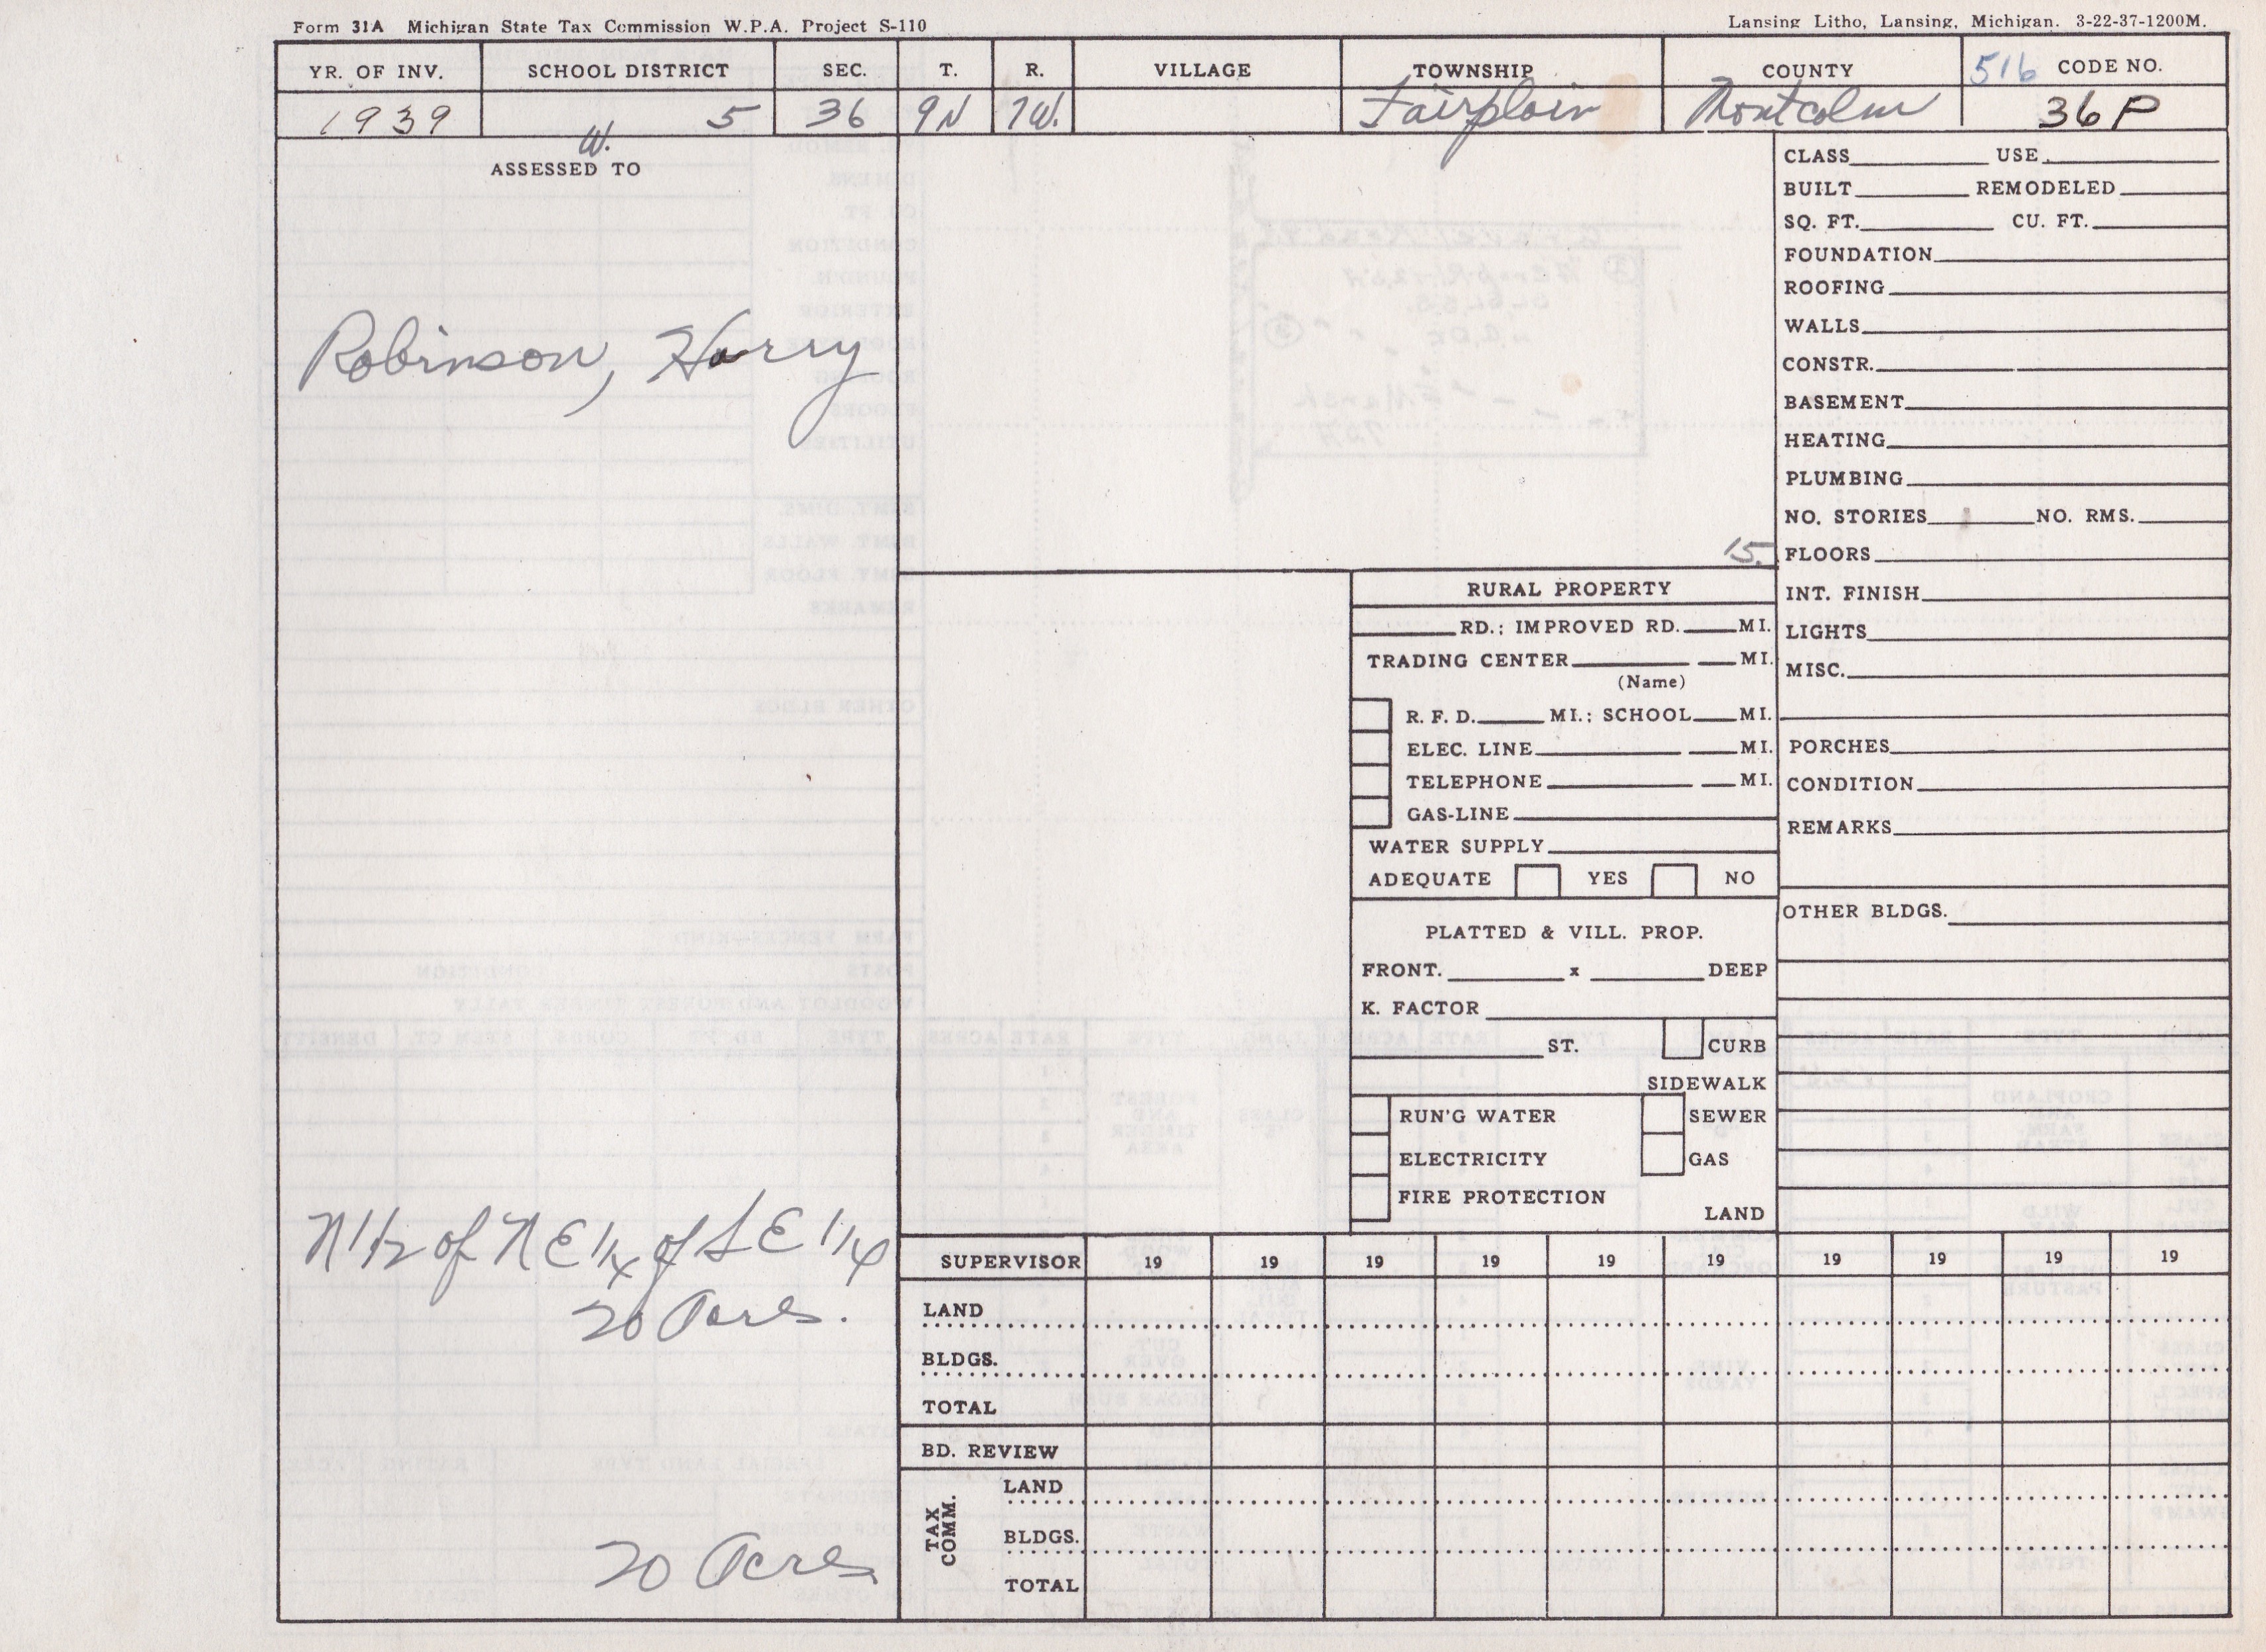 Form 31A Michigan State Tax Commission W.P.A. Project S-110
Lansing Litho, Lansing, Michigan. 3-22-37-1200M.
YR. OF INV. SCHOOL DISTRICT SEC. T. R. VILLAGE TOWNSHIP COUNTY 516 CODE NO.
1939 W. 5 36 9N 7W. Fairplain Montcalm 36P
ASSESSED TO
Robinson, Harry
N 1/2 of N E 1/4 of S E 1/4
20 Acres.
20 Acres
15.
RURAL PROPERTY
RD.; IMPROVED RD. MI.
TRADING CENTER MI.
(Name)
R. F. D. MI.; SCHOOL MI.
ELEC. LINE MI.
TELEPHONE MI.
GAS-LINE
WATER SUPPLY
ADEQUATE YES NO
PLATTED & VILL. PROP.
FRONT. x DEEP
K. FACTOR
ST. CURB
SIDEWALK
RUN'G WATER SEWER
ELECTRICITY GAS
FIRE PROTECTION
LAND
CLASS USE
BUILT REMODELED
SQ. FT. CU. FT.
FOUNDATION
ROOFING
WALLS
CONSTR.
BASEMENT
HEATING
PLUMBING
NO. STORIES NO. RMS.
FLOORS
INT. FINISH
LIGHTS
MISC.
PORCHES
CONDITION
REMARKS
OTHER BLDGS.
SUPERVISOR 19 19 19 19 19 19 19 19 19 19
LAND
BLDGS.
TOTAL
BD. REVIEW
TAX COMM.
LAND
BLDGS.
TOTAL